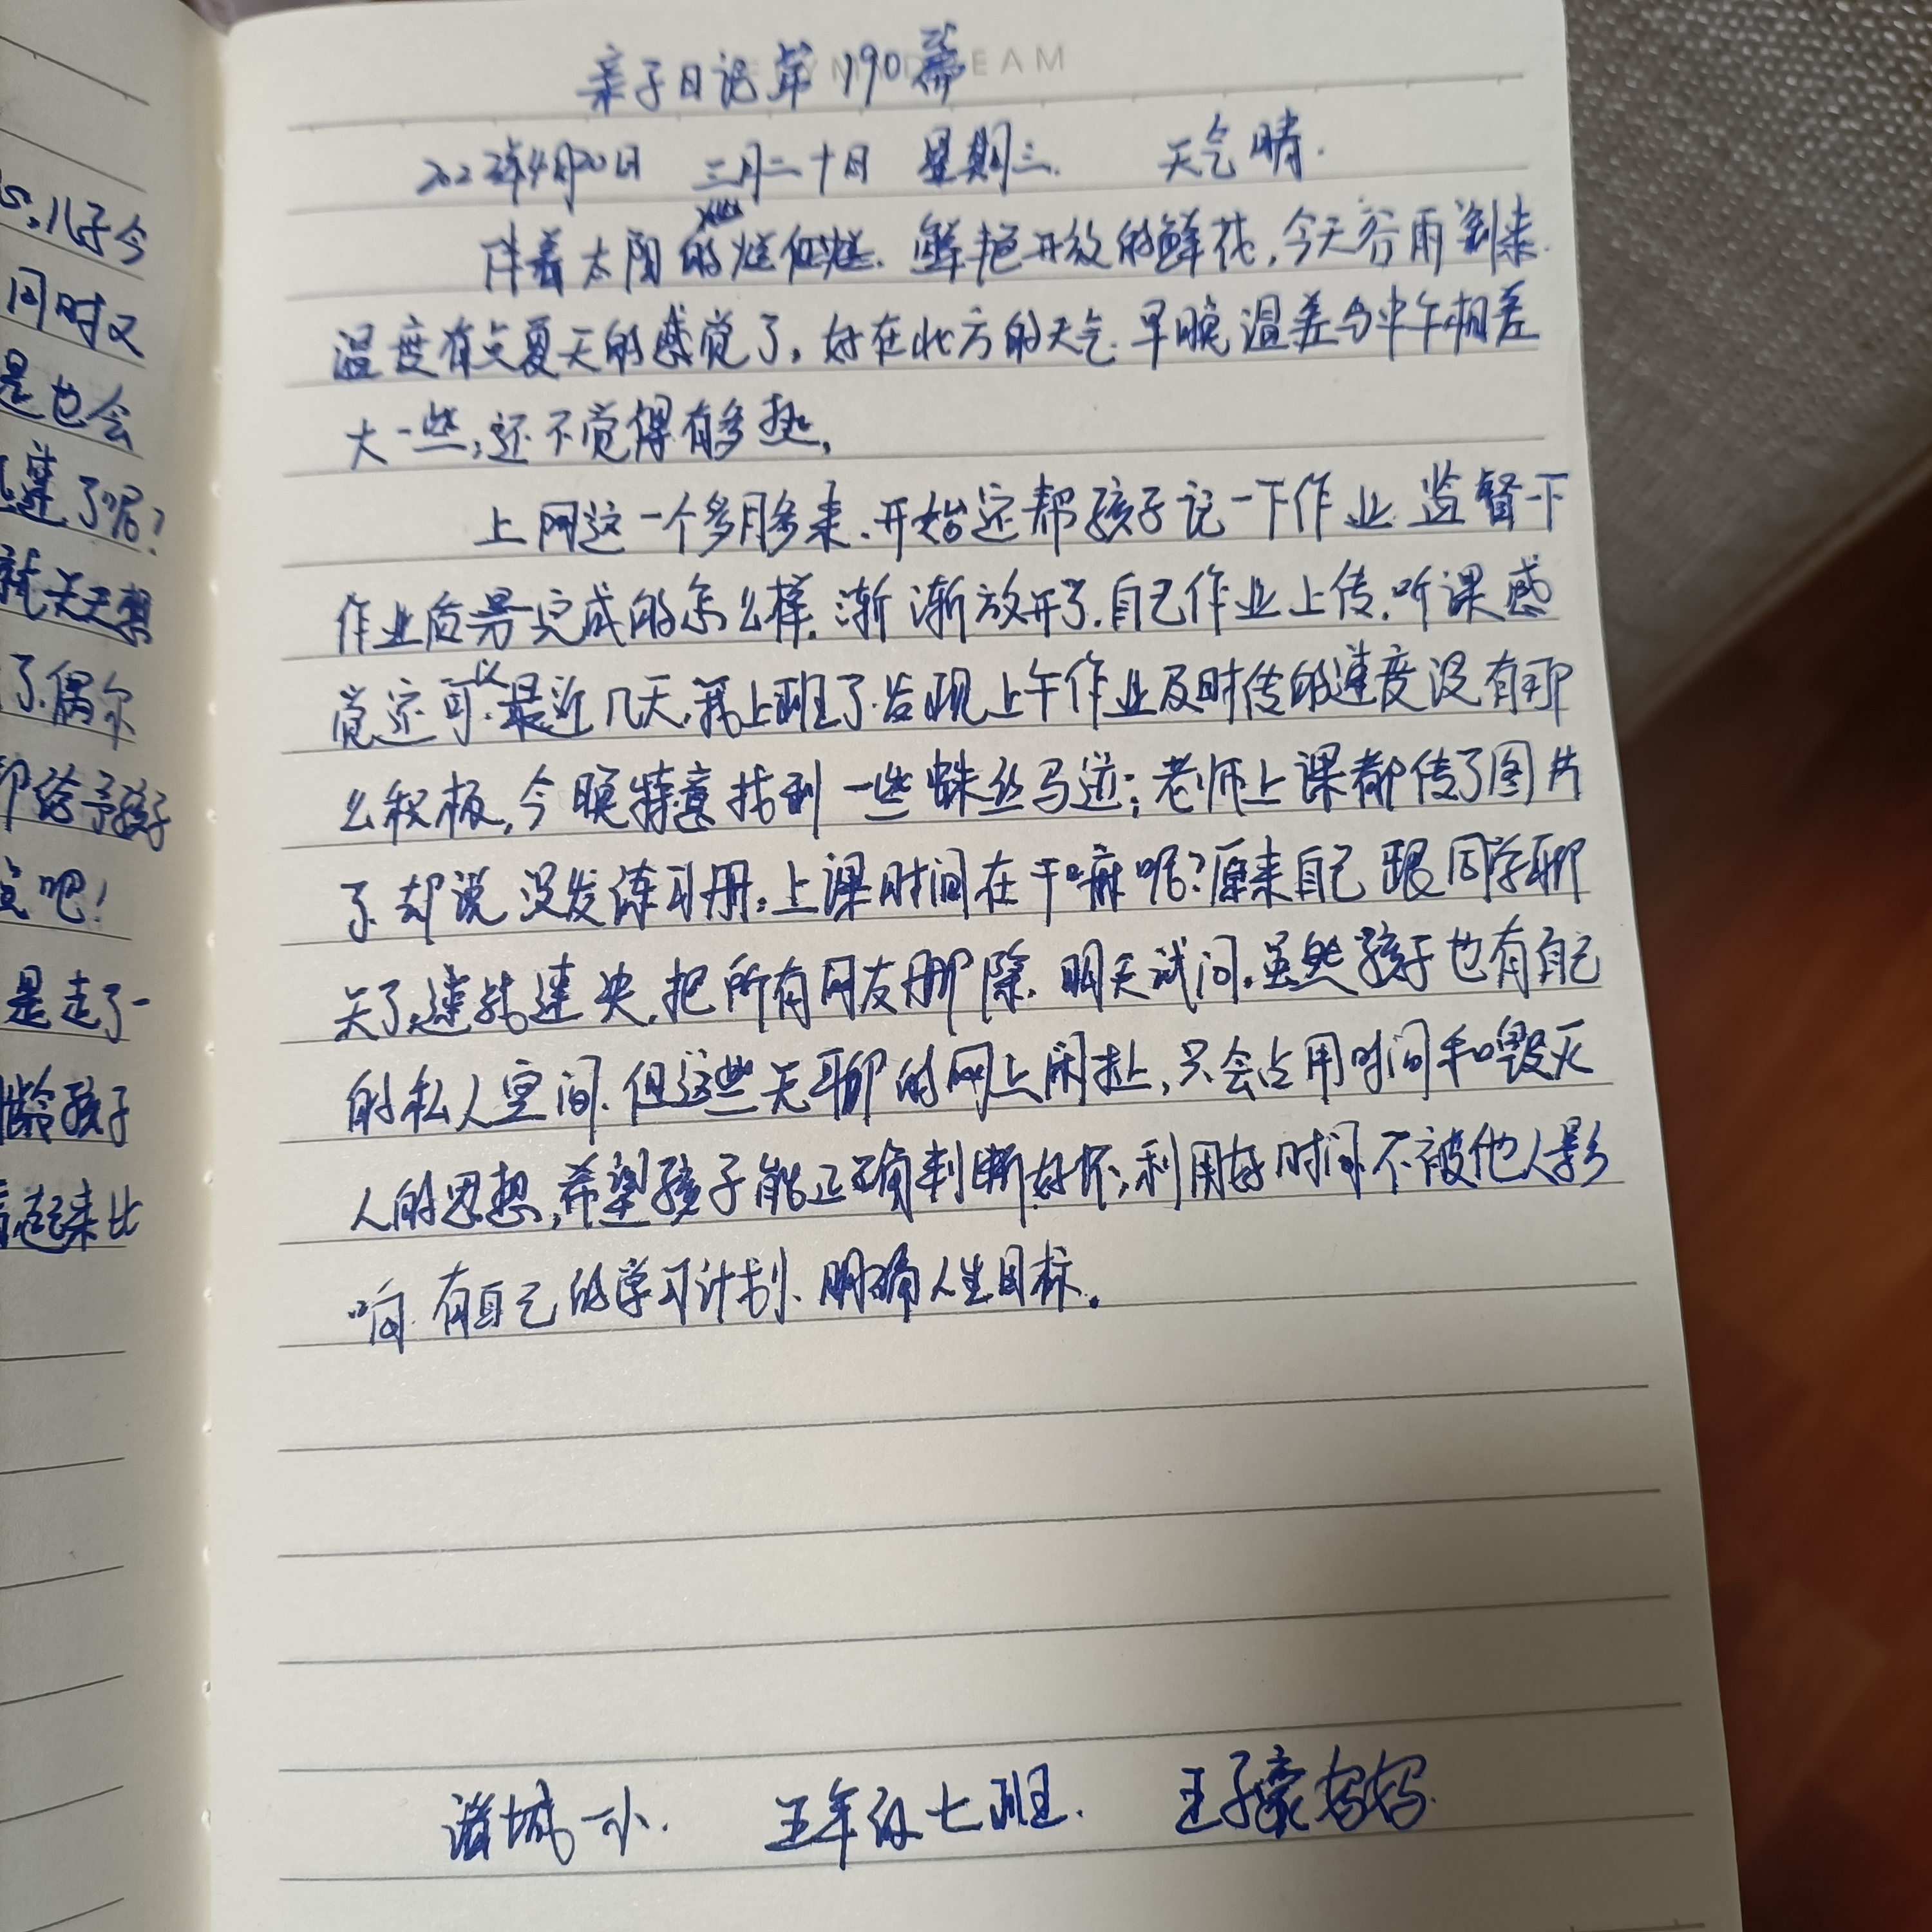 s.儿子今
同时又
是也会
了呢？
就天天想
了.偶尔
给予孩子
吧！
是走了一
龄孩子
起来比
EAM
亲子日记第190篇
2022年4月20日 三月二十日 星期三. 天气晴.
伴着太阳的 鲜艳开放的鲜花,今天谷雨到来.
温度有点夏天的感觉了,好在北方的天气.早晚温差与中午相差
大一些,还不觉得有多热,
上网这一个多月多来.开始还帮孩子记一下作业.监督下
作业后完成的怎么样.渐渐放开了.自己作业上传.听课感
觉还可以.最近几天,我上班了.发现上午作业及时传的速度没有那
么积极,今晚特意找到一些蛛丝马迹;老师上课都传了图片
了.却说没发练习册.上课时间在干嘛呢?原来自己跟同学聊
天了.速战速决.把所有网友删除.明天试问.虽然孩子也有自己
的私人空间.但这些无聊的网上闲扯,只会占用时间和毁灭
人的思想,希望孩子能正确判断好坏,利用好时间.不被他人影
响.有自己的学习计划、明确人生目标。
诸城一小. 五年级七班. 王子豪妈妈.